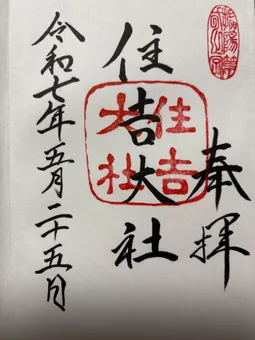 奉拝
住吉大社
住吉
大社
令和七年五月二十五日